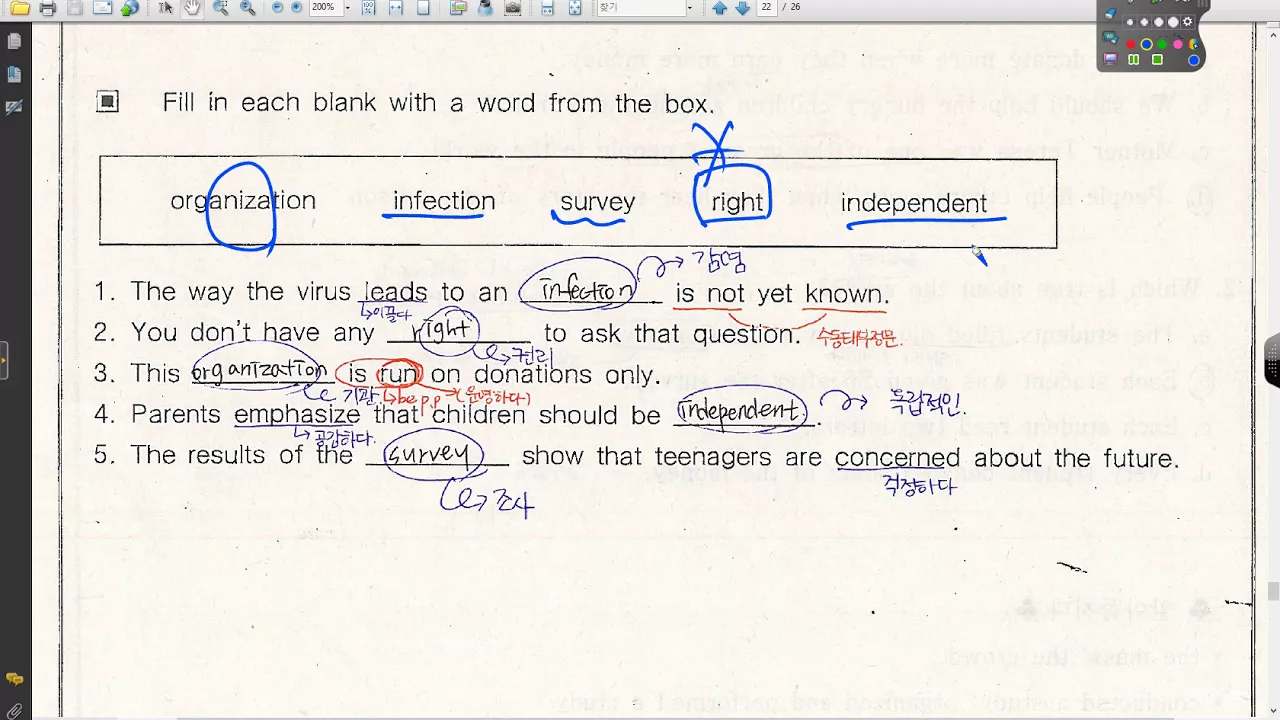 200%
찾기
22 / 26
Fill in each blank with a word from the box.
organization infection survey right independent
1. The way the virus leads to an infection is not yet known.
↳이끌다
→ 감염
2. You don't have any right to ask that question.
수동태부정문
→권리
3. This organization is run on donations only.
기관
↳be p.p
→(운영하다)
4. Parents emphasize that children should be independent.
→ 독립적인.
↳ 공감하다.
5. The results of the survey show that teenagers are concerned about the future.
걱정하다
→조사